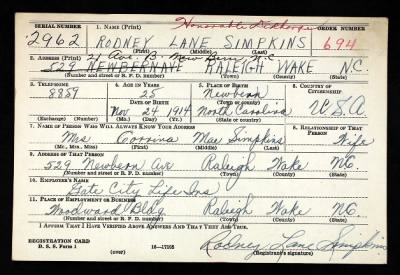 SERIAL NUMBER 1. NAME (Print) Honorable Discharge ORDER NUMBER
2962 RODNEY LANE SIMPKINS 694
(First) (Middle) (Last)
2. ADDRESS (Print) Ave. B New Bern N.C.
529 NEWBERN AVE RALEIGH WAKE N.C.
(Number and street or R. F. D. number) (Town) (County) (State)
3. TELEPHONE 4. AGE IN YEARS 5. PLACE OF BIRTH 6. COUNTRY OF CITIZENSHIP
8889 25 Newbern
DATE OF BIRTH (Town or county) U.S.A
Nov 24 1914 North Carolina
(Exchange) (Number) (Mo.) (Day) (Yr.) (State or country)
7. NAME OF PERSON WHO WILL ALWAYS KNOW YOUR ADDRESS 8. RELATIONSHIP OF THAT PERSON
Mrs Corrina Mae Simpkins Wife
(Mr., Mrs., Miss) (First) (Middle) (Last)
9. ADDRESS OF THAT PERSON
529 Newbern Ave Raleigh Wake N.C.
(Number and street or R. F. D. number) (Town) (County) (State)
10. EMPLOYER'S NAME
Gate City Life Ins
11. PLACE OF EMPLOYMENT OR BUSINESS
Woodward Bldg Raleigh Wake N.C.
(Number and street or R. F. D. number) (Town) (County) (State)
I AFFIRM THAT I HAVE VERIFIED ABOVE ANSWERS AND THAT THEY ARE TRUE.
REGISTRATION CARD Rodney Lane Simpkins
D. S. S. Form 1 (over) 16—17105 (Registrant's signature)